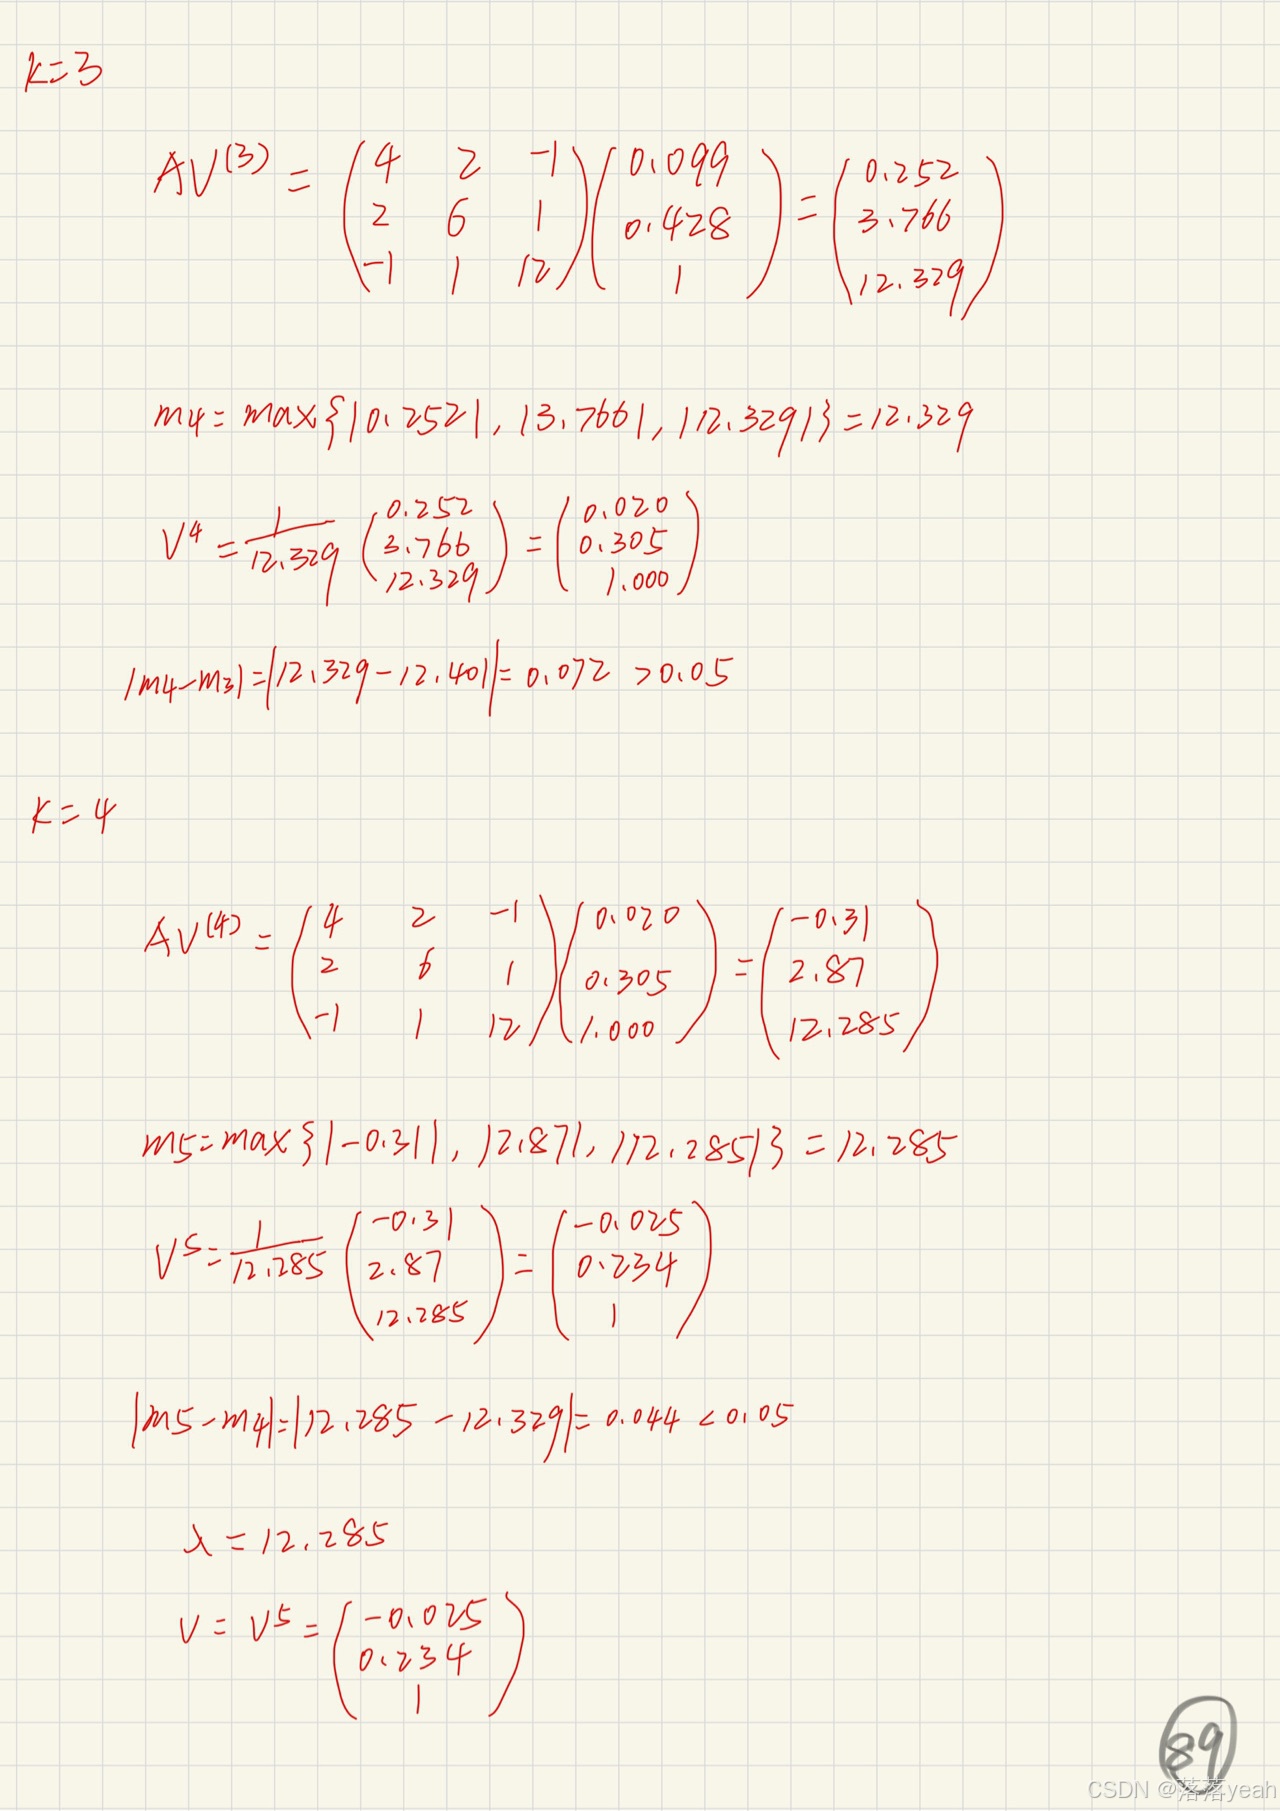 k=3
AV⁽³⁾ = (4 2 -1; 2 6 1; -1 1 12)(0.099; 0.428; 1) = (0.252; 3.766; 12.329)
m4=max{|0.252|, |3.766|, |12.329|}=12.329
V⁴=1/12.329(0.252; 3.766; 12.329)=(0.020; 0.305; 1.000)
|m4-m3|=|12.329-12.401|=0.072 >0.05
k=4
AV⁽⁴⁾=(4 2 -1; 2 6 1; -1 1 12)(0.020; 0.305; 1.000)=(-0.31; 2.87; 12.285)
m5=max{|-0.31|, |2.87|, |12.285|}=12.285
V⁵=1/12.285(-0.31; 2.87; 12.285)=(-0.025; 0.234; 1)
|m5-m4|=|12.285-12.329|=0.044<0.05
λ=12.285
V=V⁵=(-0.025; 0.234; 1)
89
CSDN @落落yeah